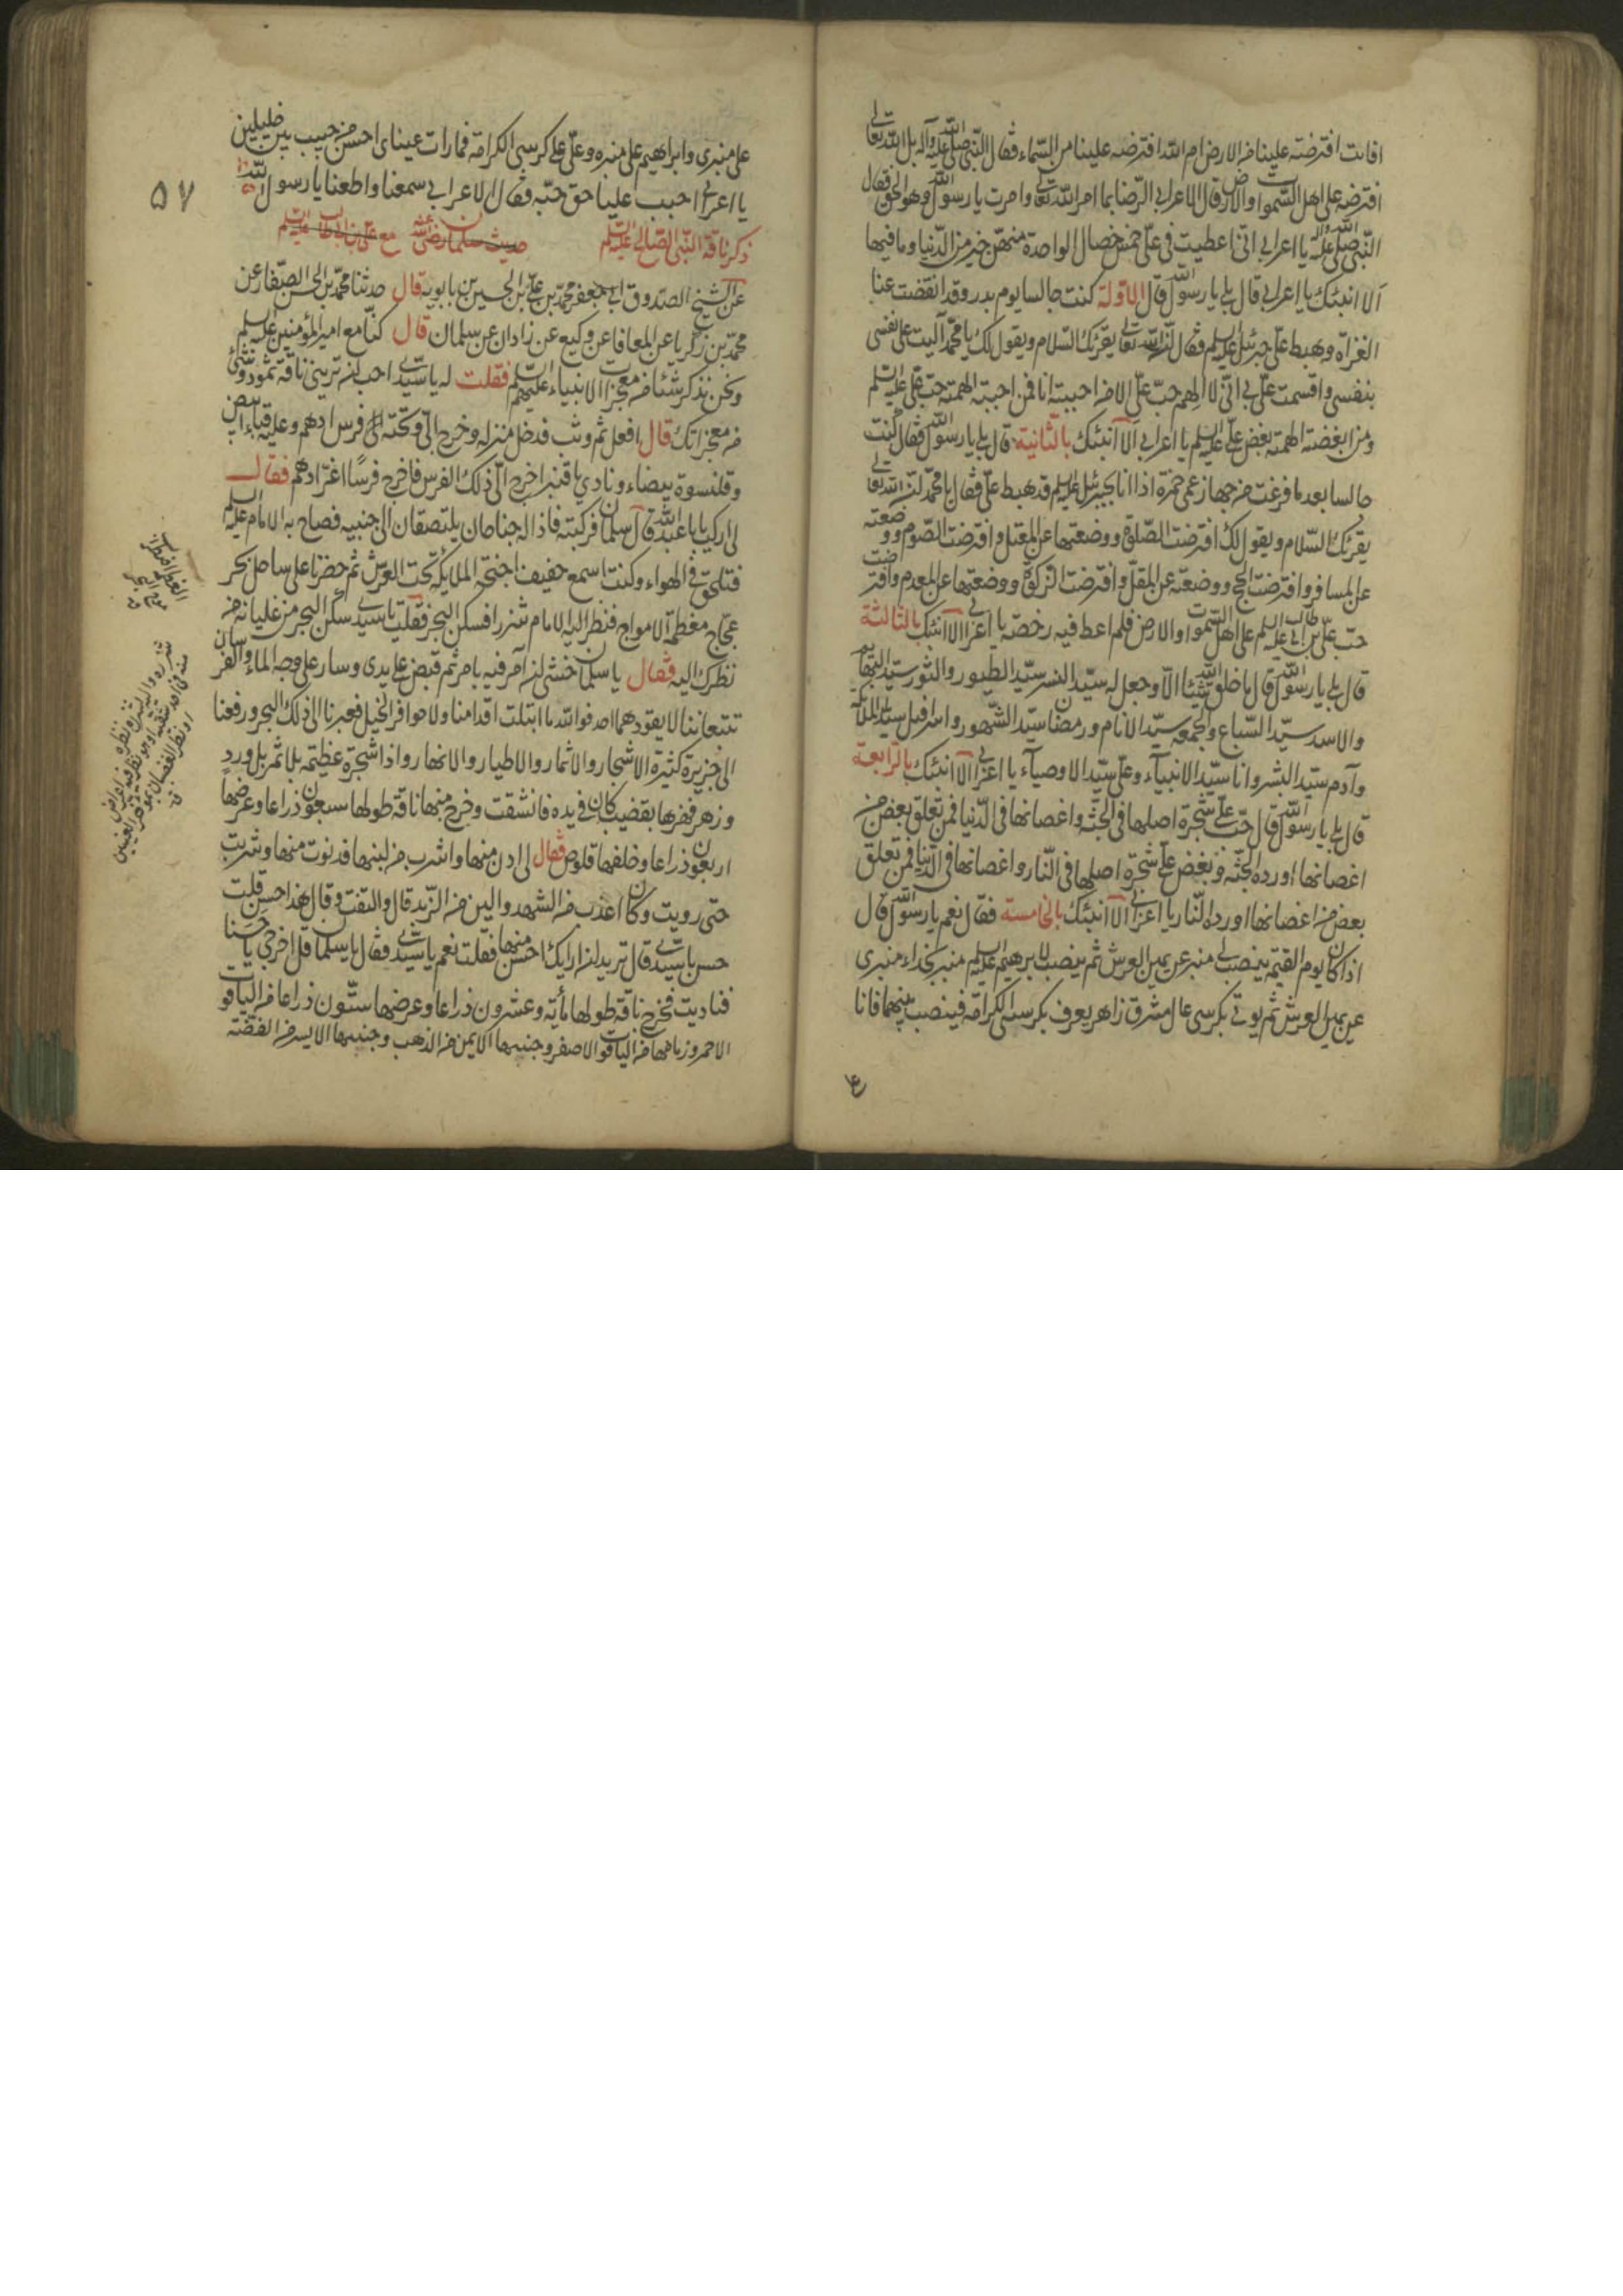 افانت افترضته علينا من الارض ام الله افترضه علينا من السماء فقال النبي صلى الله عليه وآله بل الله تعالى
افترضه على اهل السموات والارض قال الاعرابي الرضا بما امر الله تعالى وامرت يا رسول الله وهو الحق فقال
النبي صلى الله عليه وآله يا اعرابي اني اعطيت في علي خمس خصال الواحدة منهن خير من الدنيا وما فيها
ألا انبئك يا اعرابي قال بلى يا رسول الله قال الاولة كنت جالسا يوم بدر وقد انقضت عنا
الغزاة وهبط علي جبرئيل عليه السلم فقال ان الله تعالى يقرئك السلام ويقول لك يا محمد آليت على نفسى
بنفسى واقسمت علي بي اني لا الهم حب علي الا من احببته انا فمن احببته الهمته حب علي عليه السلم
ومن ابغضته الهمته بغض علي عليه السلم يا اعرابي ألا انبئك بالثانية قال بلى يا رسول الله فقال كنت
جالسا بعد ما فرغت من جهاز عمى حمزه اذا انا بجبرئيل عليه السلم قد هبط علي فقال يا محمد ان الله تعالى
يقرئك السلام ويقول لك افترضت الصلوة ووضعتها عن المعتل وافترضت الصوم ووضعته
عن المسافر وافترضت الحج ووضعته عن المقل وافترضت الزكوة ووضعتها عن المعدم وافترضت
حب علي بن ابي طالب عليه السلم على اهل السموات والارض فلم اعط فيه رخصة يا اعرابي ألا انبئك بالثالثة
قال بلى يا رسول الله قال ما خلق الله شيئا الا وجعل له سيد النسر سيد الطيور والثور سيد البهايم
والاسد سيد السباع والجمعه سيد الايام ورمضان سيد الشهور واسرافيل سيد الملائكة
وآدم سيد البشر وانا سيد الانبيآء وعلي سيد الاوصيآء يا اعرابي ألا انبئك بالرابعة
قال بلى يا رسول الله قال حب علي شجرة اصلها فى الجنة واغصانها فى الدنيا فمن تعلق ببعض من
اغصانها اورده الجنة وبغض علي شجرة اصلها فى النار واغصانها فى الدنيا فمن تعلق
ببعض من اغصانها اورده النار يا اعرابي ألا انبئك بالخامسة فقال نعم يا رسول الله قال
اذا كان يوم القيمة ينصب لي منبر عن يمين العرش ثم ينصب لابرهيم عليه السلم منبر بحذاء منبرى
عن يمين العرش ثم يوتى بكرسى عال مشرق زاهر يعرف بكرسى الكرامة فينصب بينهما فانا
على منبرى وابراهيم على منبره وعلي على كرسى الكرامة فما رات عيناى احسن من حبيب بين خليلين
يا اعرابي احبب عليا حق حبه فقال الاعرابي سمعنا واطعنا يا رسول الله
ذكر ناقة النبى الصالح عليه السلم حديث سلمان رضى الله عنه مع علي بن ابي طالب عليه السلم
عن الشيخ الصدوق ابي جعفر محمد بن علي بن الحسين بن بابويه قال حدثنا محمد بن الحسن الصفار عن
محمد بن زكريا عن المعافا عن وكيع عن زادان عن سلمان قال كنا مع امير المؤمنين عليه السلم
ونحن نذكر شيئا من معجزات الانبياء عليهم السلم فقلت له يا سيدى احب ان ترينى ناقة ثمود وشئ
من معجزاتك قال افعل ثم وثب فدخل منزله وخرج الي وتحته فرس ادهم وعليه قباء ابيض
وقلنسوة بيضاء ونادى يا قنبر اخرج الي ذلك الفرس فاخرج فرسا اغر ادهم فقال
لى اركب يا با عبد الله قال سلمان فركبته فاذا له جناحان يلتصقان الى جنبيه فصاح به الامام عليه السلم
فتلحق فى الهواء وكنت اسمع حفيف اجنحة الملايكة تحت العرش ثم حضرنا على ساحل بحر
عجاج مغطمط الامواج فنظر اليه الامام شزرا فسكن البحر فقلت يا سيدى سكن البحر من غليانه من
نظرك اليه فقال يا سلمان خشى ان آمر فيه بامر ثم قبض على يدى وسار على وجه الماء والفرسان
تتبعاننا لا يقودهما احد فوالله ما ابتلت اقدامنا ولا حوافر الخيل فعبرنا الى ذلك البحر ورفعنا
الى جزيرة كثيرة الاشجار والاثمار والاطيار والانهار واذا شجرة عظيمة بلا ثمر بل ورد
وزهر فهزها بقضيب كان فى يده فانشقت وخرج منها ناقة طولها سبعون ذراعا وعرضها
اربعون ذراعا وخلفها قلوص فقال لى ادن منها واشرب من لبنها فدنوت منها وشربت
حتى رويت وكان اعذب من الشهد والين من الزبد قال والتفت وقال هذا حسن قلت
حسن يا سيدى قال تريد ان اريك احسن منها فقلت نعم يا سيدى فقال يا سلمان قل اخرجى يا حسنا
فناديت فخرج ناقة طولها مأية وعشرون ذراعا وعرضها ستون ذراعا من الياقوت
الاحمر وزمامها من الياقوت الاصفر وجنبها الايمن من الذهب وجنبها الايسر من الفضة
٥٧